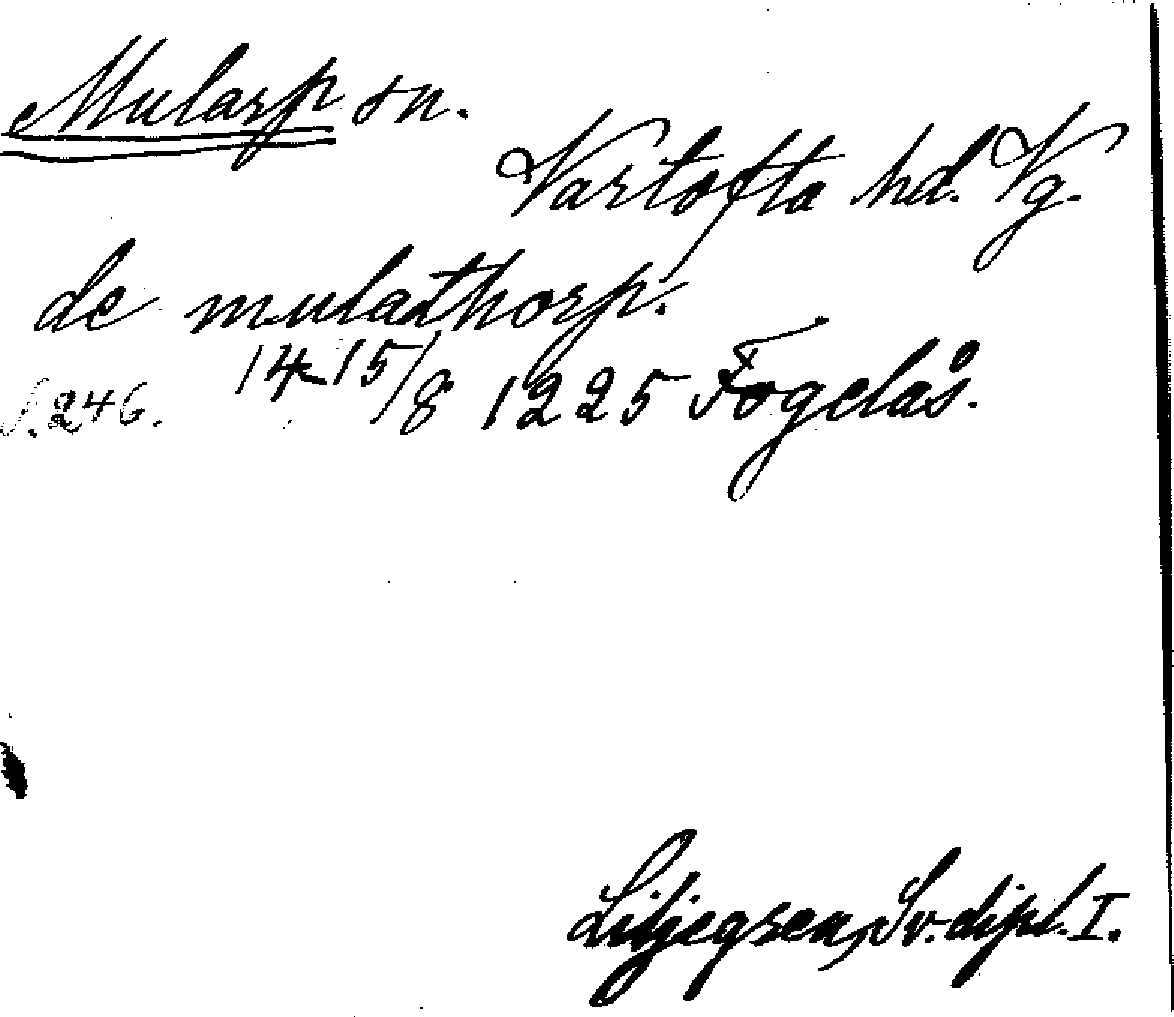 Mularp sn.
Vartofta hd. Vg.
de mulathorp.
14-15/8 1225 Fogelås.
S. 246.
Liljegren, Sv. dipl. I.